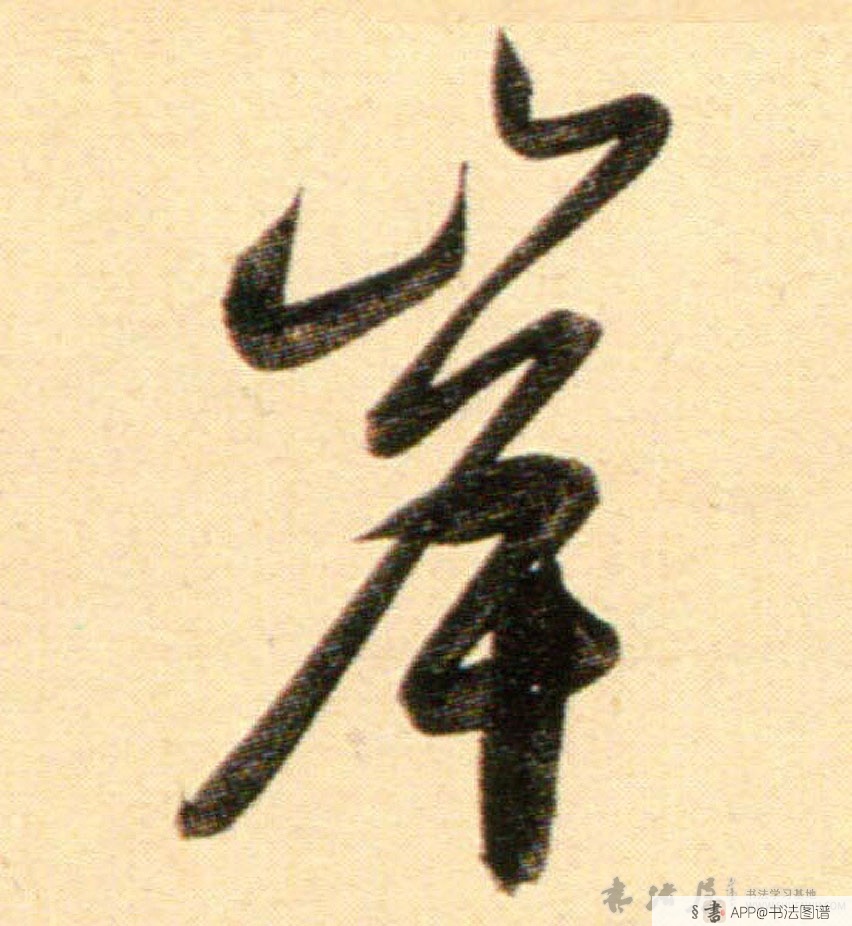 岸
书法学习基地
§書 APP@书法图谱